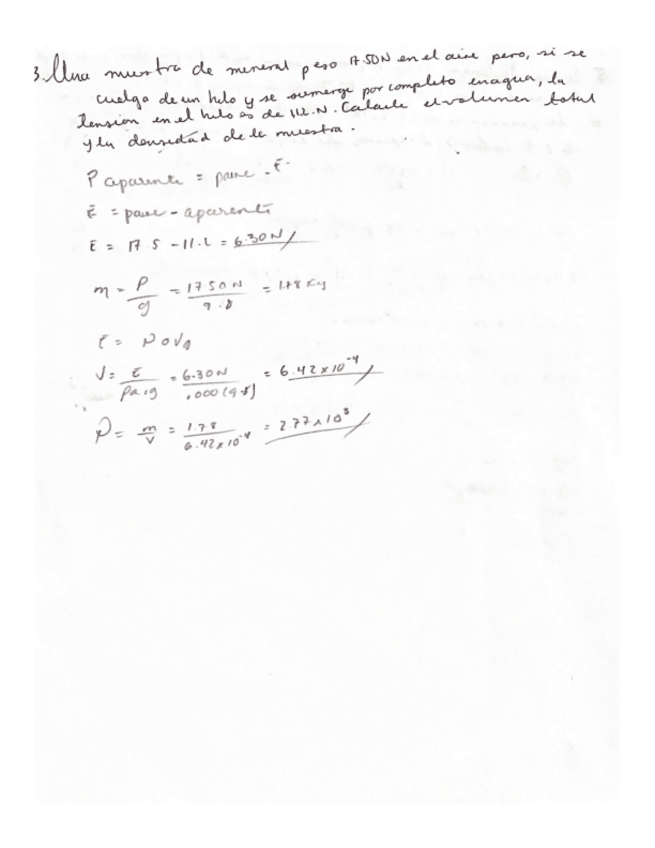 3. Una muestra de mineral peso 17.50N en el aire pero, si se
cuelga de un hilo y se sumerge por completo en agua, la
tensión en el hilo es de 11.2.N. Calcule el volumen total
y la densidad de la muestra.
P aparente = paire - E
E = paire - aparente
E = 17.5 - 11.2 = 6.30 N
m = P/g = 17.50 N/9.8 = 1.78 Kg
V = E/Pa.g = 6.30N/.000(9.8) = 6.42x10⁻⁴
P = m/V = 1.78/6.42x10⁻⁴ = 2.77x10³